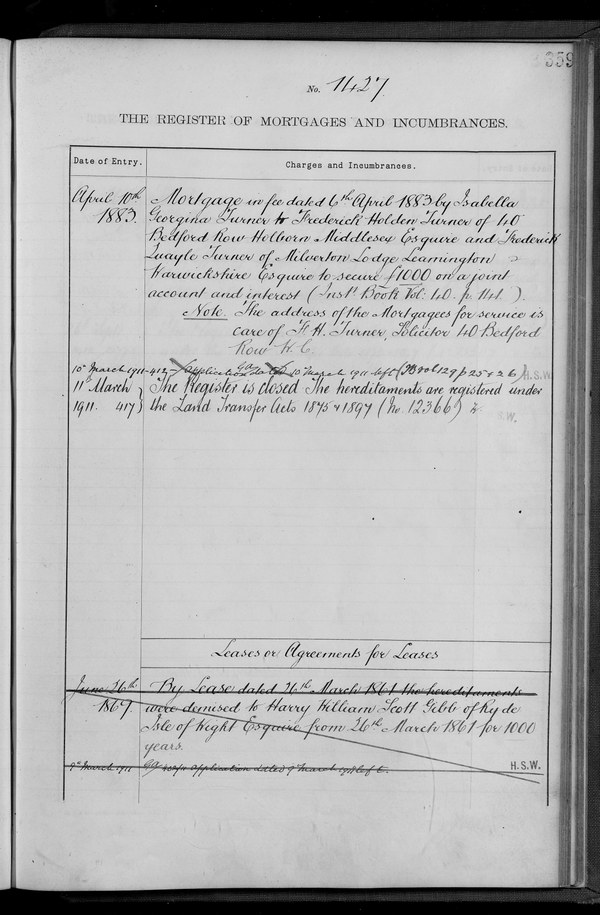 359
No. 1427
THE REGISTER OF MORTGAGES AND INCUMBRANCES.
Date of Entry.
Charges and Incumbrances.
April 10th 1883.
Mortgage in fee dated 6th April 1883 by Isabella
Georgina Turner to Frederick Holden Turner of 40
Bedford Row Holborn Middlesex Esquire and Frederick
Quayle Turner of Milverton Lodge Leamington
Warwickshire Esquire to secure £1000 on a joint
account and interest (Inst. Book Vol: 40. p. 141. ).
Note. The address of the Mortgagees for service is
care of F. H. Turner, Solicitor 40 Bedford
Row W. C.
10th March 1911 412 Application 10 March 1911 left (IB vol 129 p 25 & 26) H.S.W.
11th March The Register is closed The hereditaments are registered under
1911. 417 the Land Transfer Acts 1875 & 1897 (No. 12366)
Leases or Agreements for Leases
June 26th By Lease dated 26th March 1861 the hereditaments
1867. were demised to Harry William Scott Gibb of Ryde
Isle of Wight Esquire from 26th March 1861 for 1000
years.
9th March 1911 application dated 9 March 1911 left.
H.S.W.